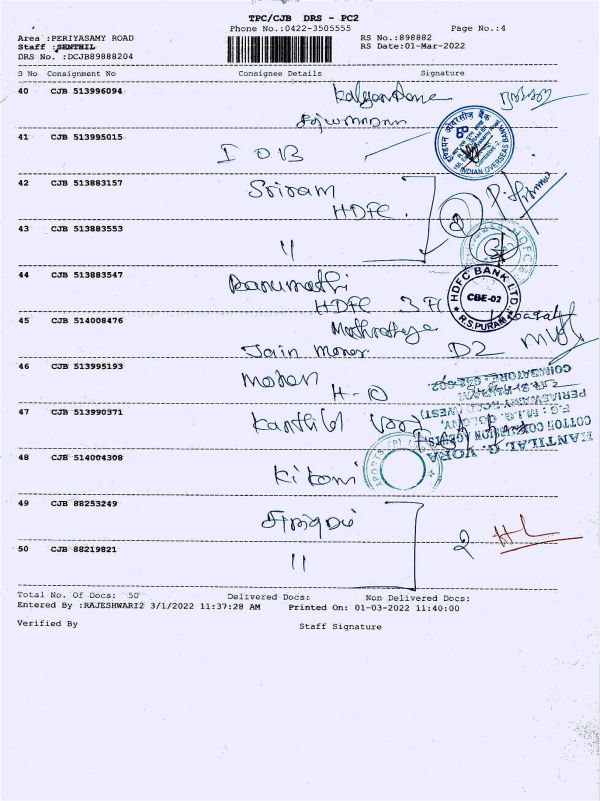 TPC/CJB DRS - PC2
Phone No.:0422-3505555
Page No.:4
Area :PERIYASAMY ROAD
RS No.:898882
Staff :SENTHIL
RS Date:01-Mar-2022
DRS No. :DCJB89888204
S No Consignment No Consignee Details Signature
40 CJB 513996094
41 CJB 513995015
IOB
इण्डियन ओवरसीज़ बैंक
INDIAN OVERSEAS BANK
42 CJB 513883157
Sriram
HDFC.
2
43 CJB 513883553
"
44 CJB 513883547
Banumathi
HDFC 3 Fl
HDFC BANK LTD.
CBE-02
R.S.PURAM
45 CJB 514008476
Jain D2
46 CJB 513995193
Mohan
H-O
47 CJB 513990371
Kantilal
KANTILAL G. VORA
COTTON COMMISSION AGENTS
F.G : M.I.G. COLONY,
PERIASWAMY ROAD (WEST)
R.S. PURAM
COIMBATORE - 641 002.
48 CJB 514004308
Kitoni
49 CJB 88253249
2
50 CJB 88219821
"
Total No. Of Docs: 50 Delivered Docs: Non Delivered Docs:
Entered By :RAJESHWARI2 3/1/2022 11:37:28 AM Printed On: 01-03-2022 11:40:00
Verified By Staff Signature